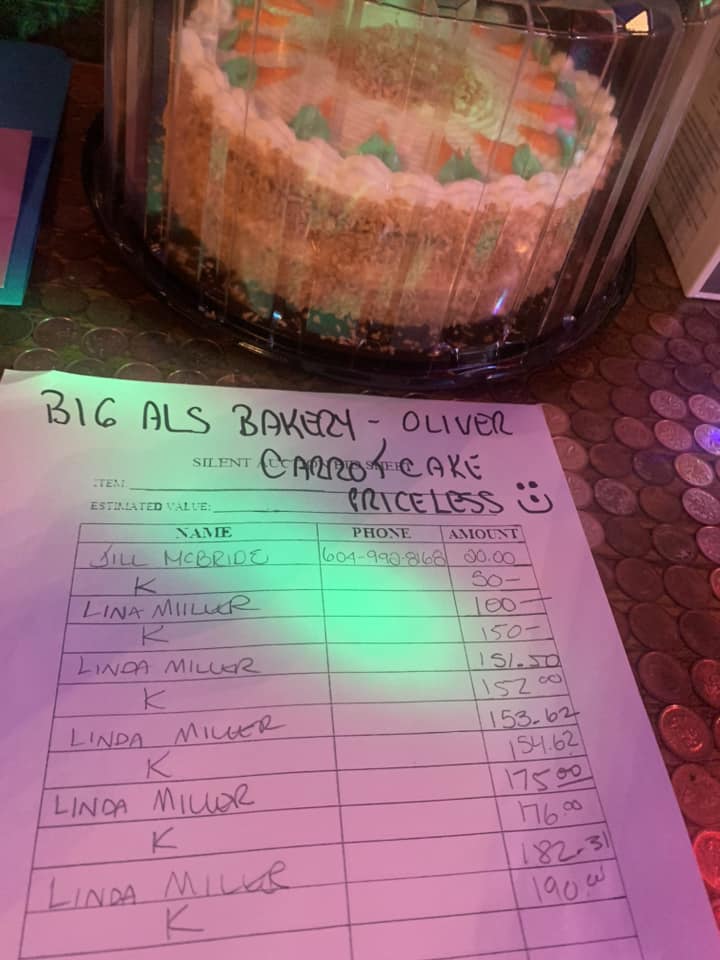 BIG ALS BAKERY - OLIVER
SILENT
CARROT CAKE
ITEM:
ESTIMATED VALUE: PRICELESS
NAME PHONE AMOUNT
JILL MCBRIDE 604-992-8168 20.00
K 50-
LINA MIILLER 100-
K 150-
LINDA MILLER 151.50
K 152.00
LINDA MILLER 153.62
K 154.62
LINDA MILLER 175.00
K 176.00
LINDA MILLER 182.31
K 190.00